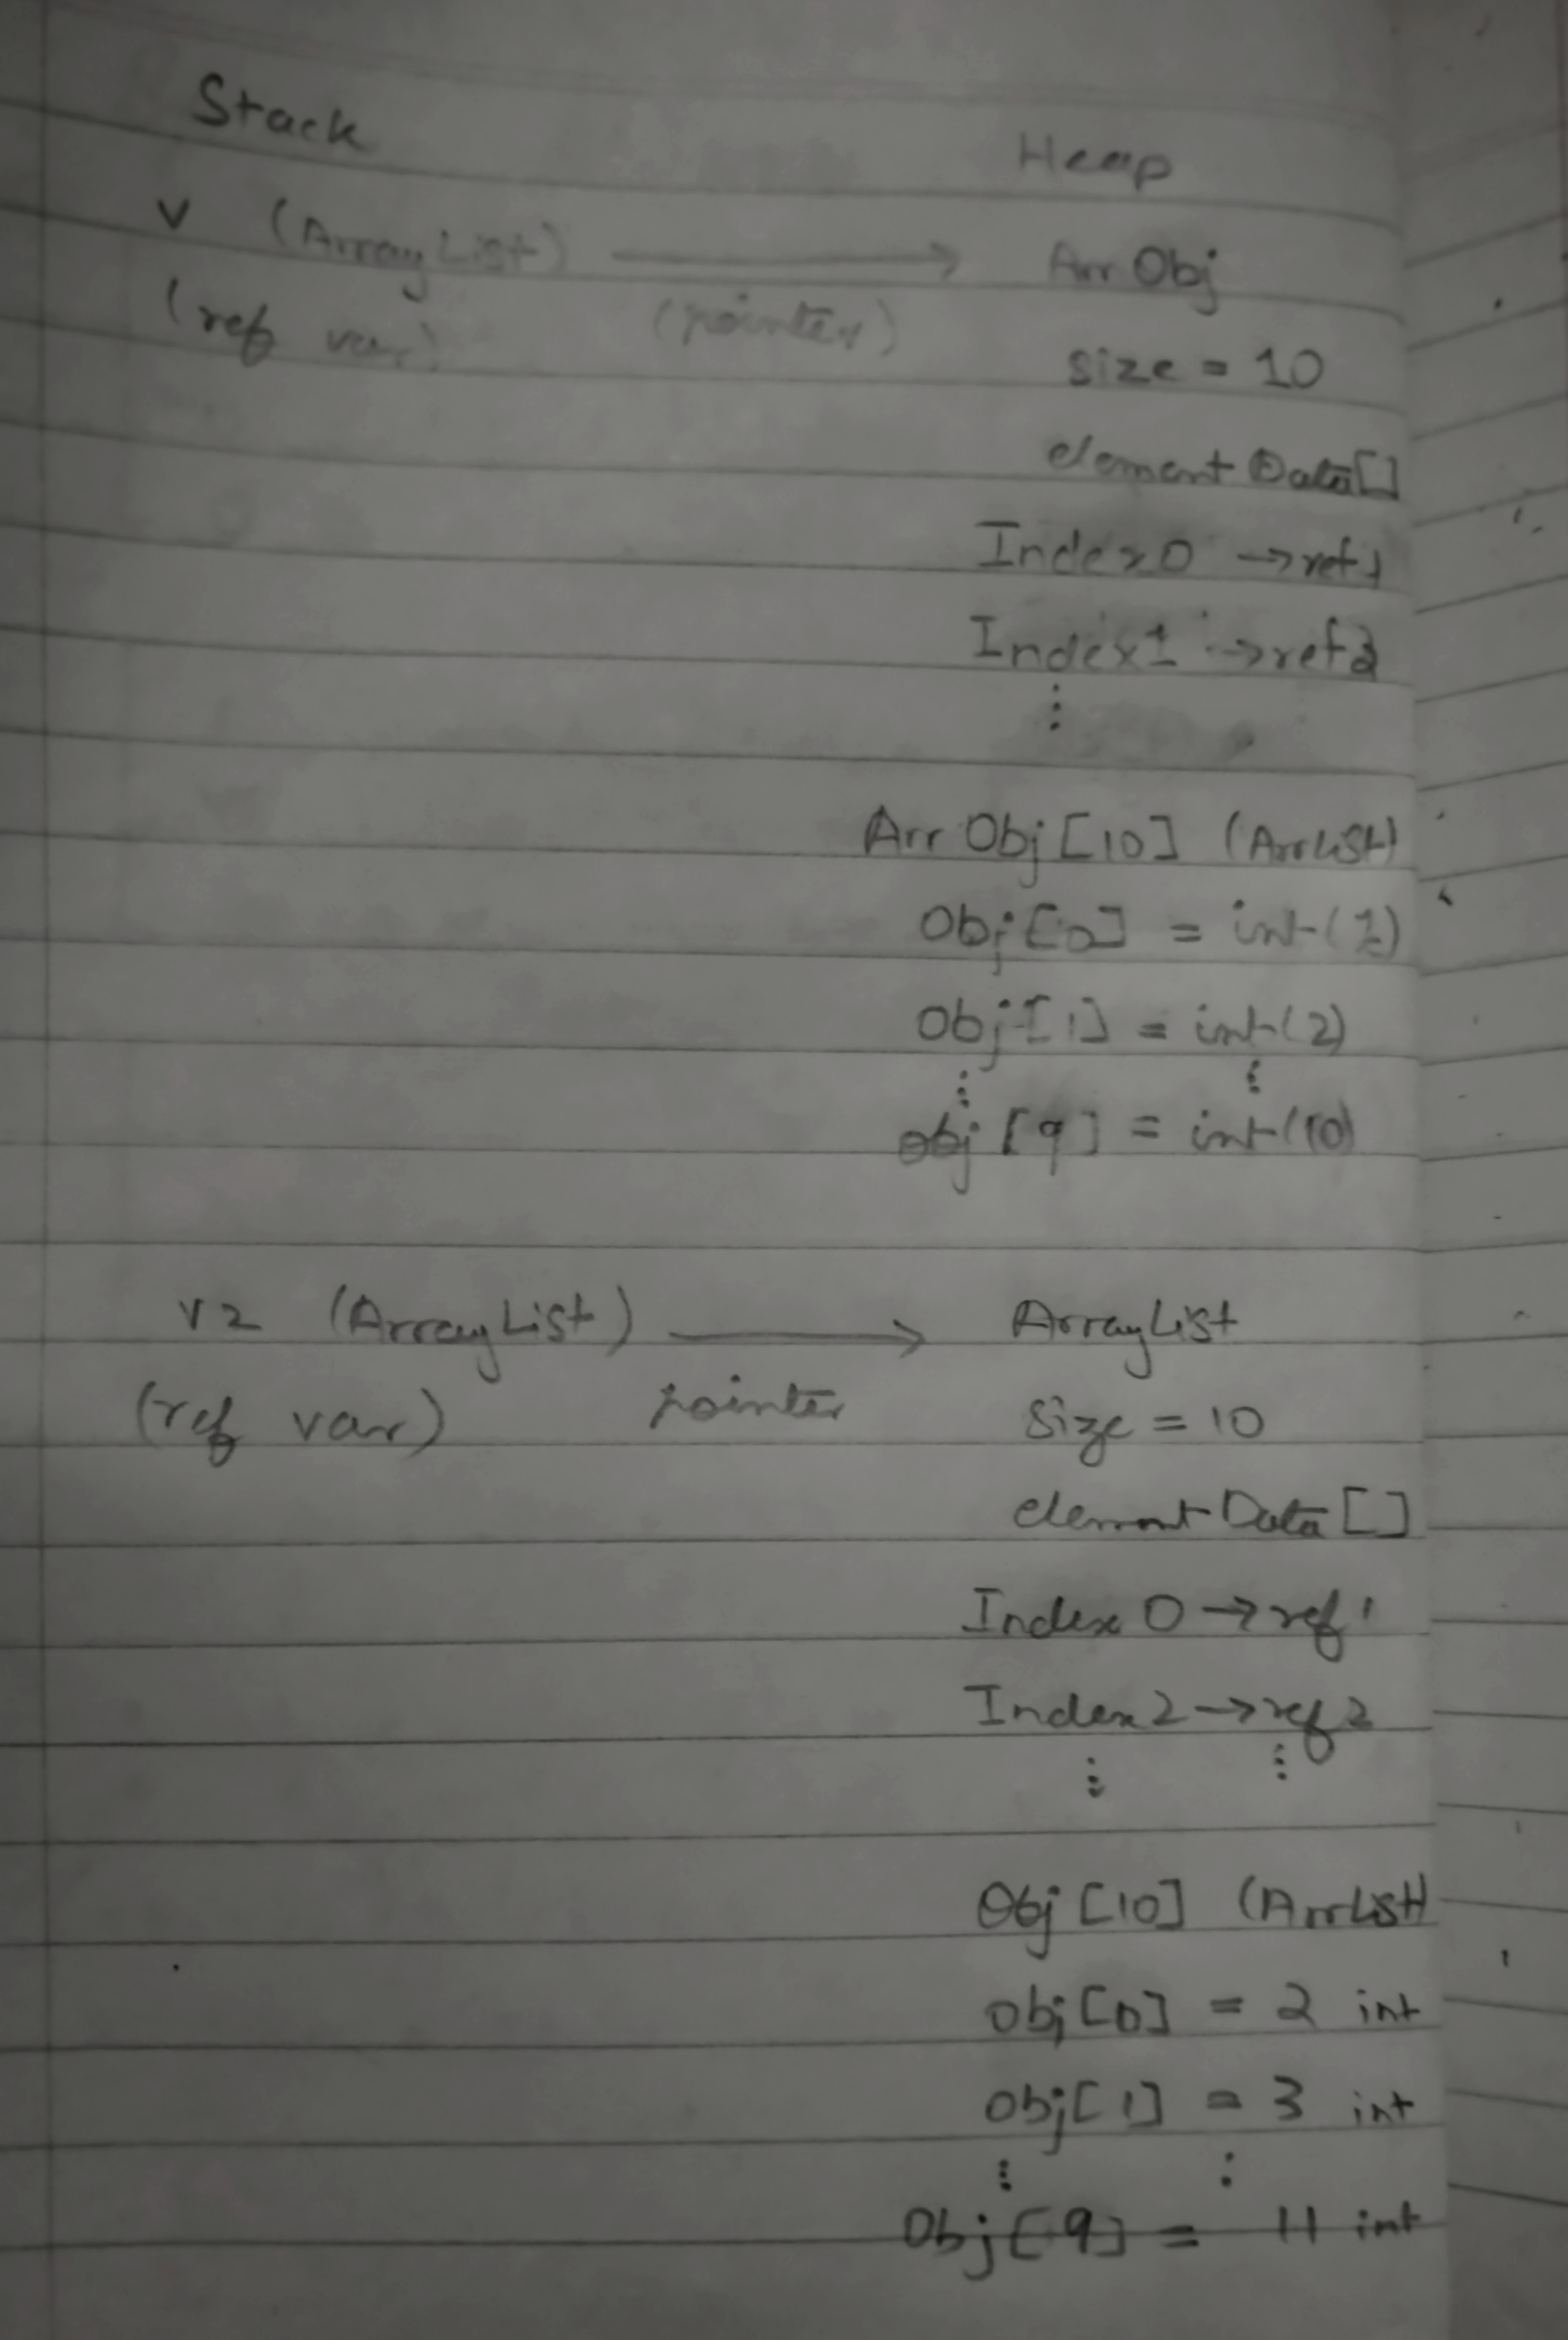 Stack Heap
v (ArrayList) → Arr Obj
(ref var) (pointer)
size = 10
elementData[]
Index 0 → ref 1
Index 1 → ref 2
⋮
Arr Obj [10] (ArrList)
Obj [0] = int (1)
Obj [1] = int (2)
⋮ ⋮
obj [9] = int (10)
v2 (ArrayList) → ArrayList
(ref var) pointer Size = 10
elementData []
Index 0 → ref 1
Index 2 → ref 2
⋮ ⋮
Obj [10] (ArrList)
obj [0] = 2 int
obj [1] = 3 int
⋮ ⋮
Obj [9] = 11 int